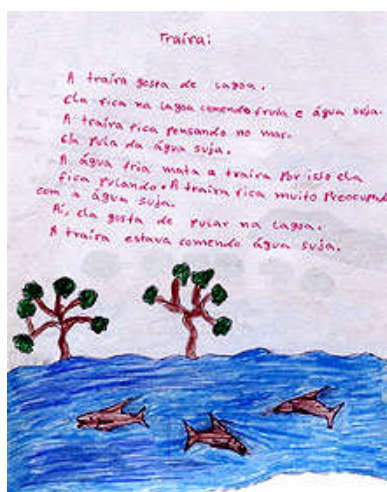 Traíra:
A traíra gosta de lagoa.
Ela fica na lagoa comendo fruta e água suja.
A traíra fica pensando no mar.
Ela pula da água suja.
A água fria mata a traíra por isso ela
fica pulando. A traíra fica muito preocupada
com a água suja.
Aí, ela gosta de pular na lagoa.
A traíra estava comendo água suja.